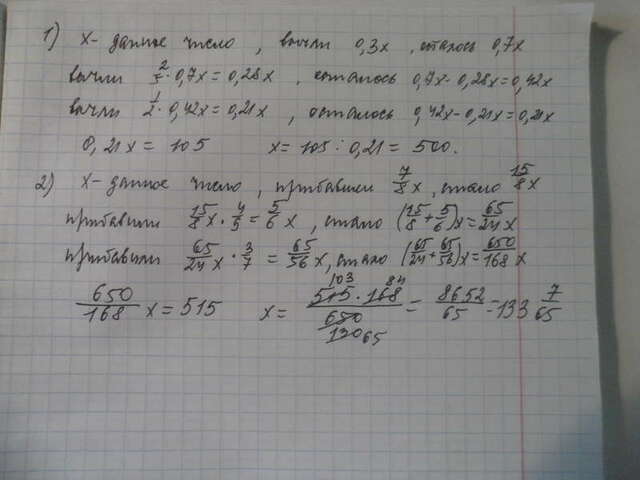 1) х- данное число, вычли 0,3х, осталось 0,7х
вычли 2/5 · 0,7х = 0,28х, осталось 0,7х - 0,28х = 0,42х
вычли 1/2 · 0,42х = 0,21х, осталось 0,42х - 0,21х = 0,21х
0,21х = 105 х = 105 : 0,21 = 500.
2) х- данное число, прибавили 7/8х, стало 15/8х
прибавили 15/8х · 4/5 = 5/6х, стало (15/8 + 5/6)х = 65/24х
прибавили 65/24х · 3/7 = 65/56х, стало (65/24 + 65/56)х = 650/168х
650/168 х = 515 х = 515 103 · 168 84 / 650 130 65 = 8652/65 = 133 7/65